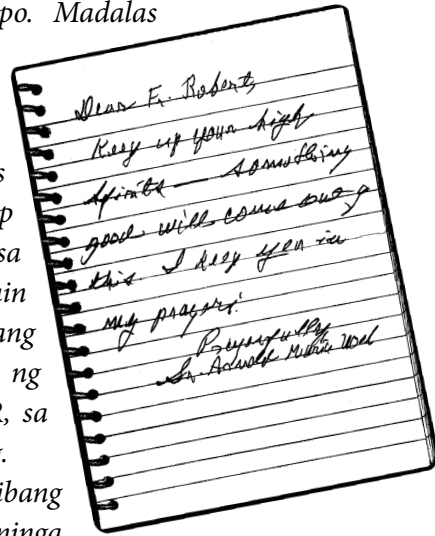 po. Madalas
sa
ang
ng
sa
ibang
Dear Fr. Roberts,
Keep up your high
spirits — something
good will come out of
this. I keep you in
my prayers!
Prayerfully
Sr. Arnold Maria